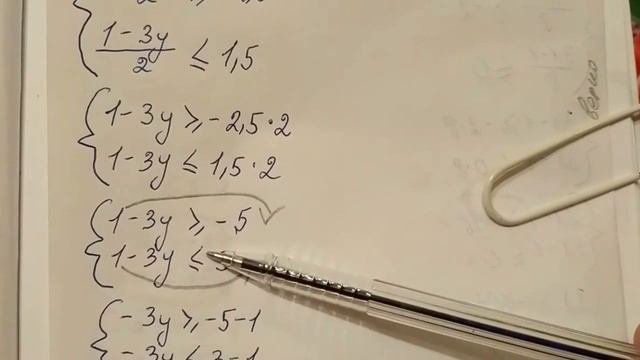 1-3y/2 ≤ 1,5
1-3y ≥ -2,5·2
1-3y ≤ 1,5·2
1-3y ≥ -5
1-3y ≤ 3
-3y ≥ -5-1
-3y ≤ 3-1
верно